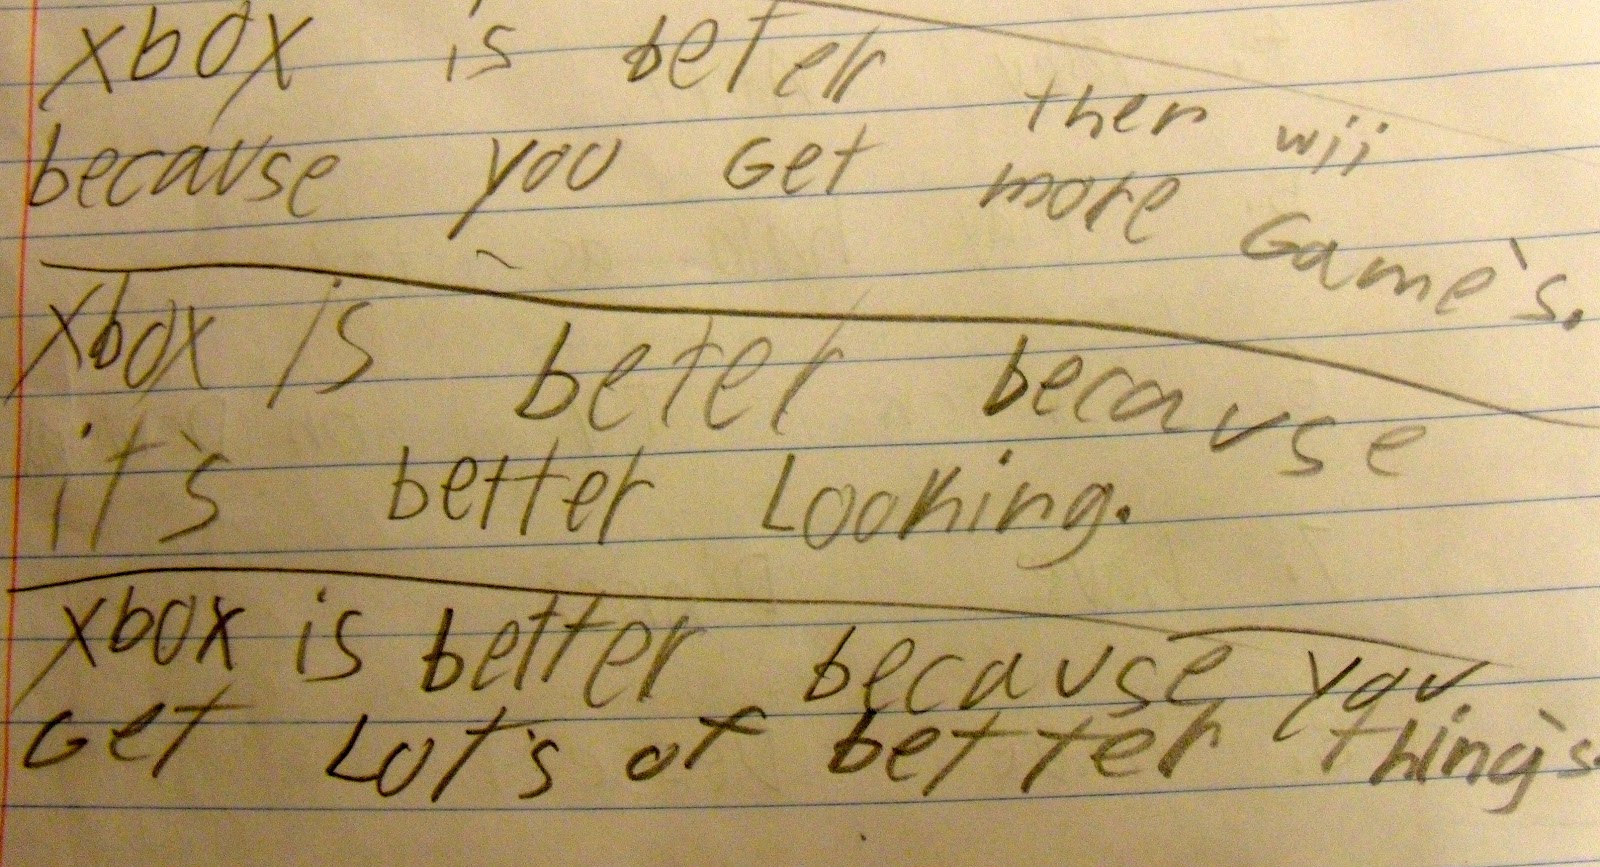 xbox is beter then wii
because you Get more Game's.
xbox is beter because
it's better Looking.
xbox is better because you
Get Lot's of better thing's.